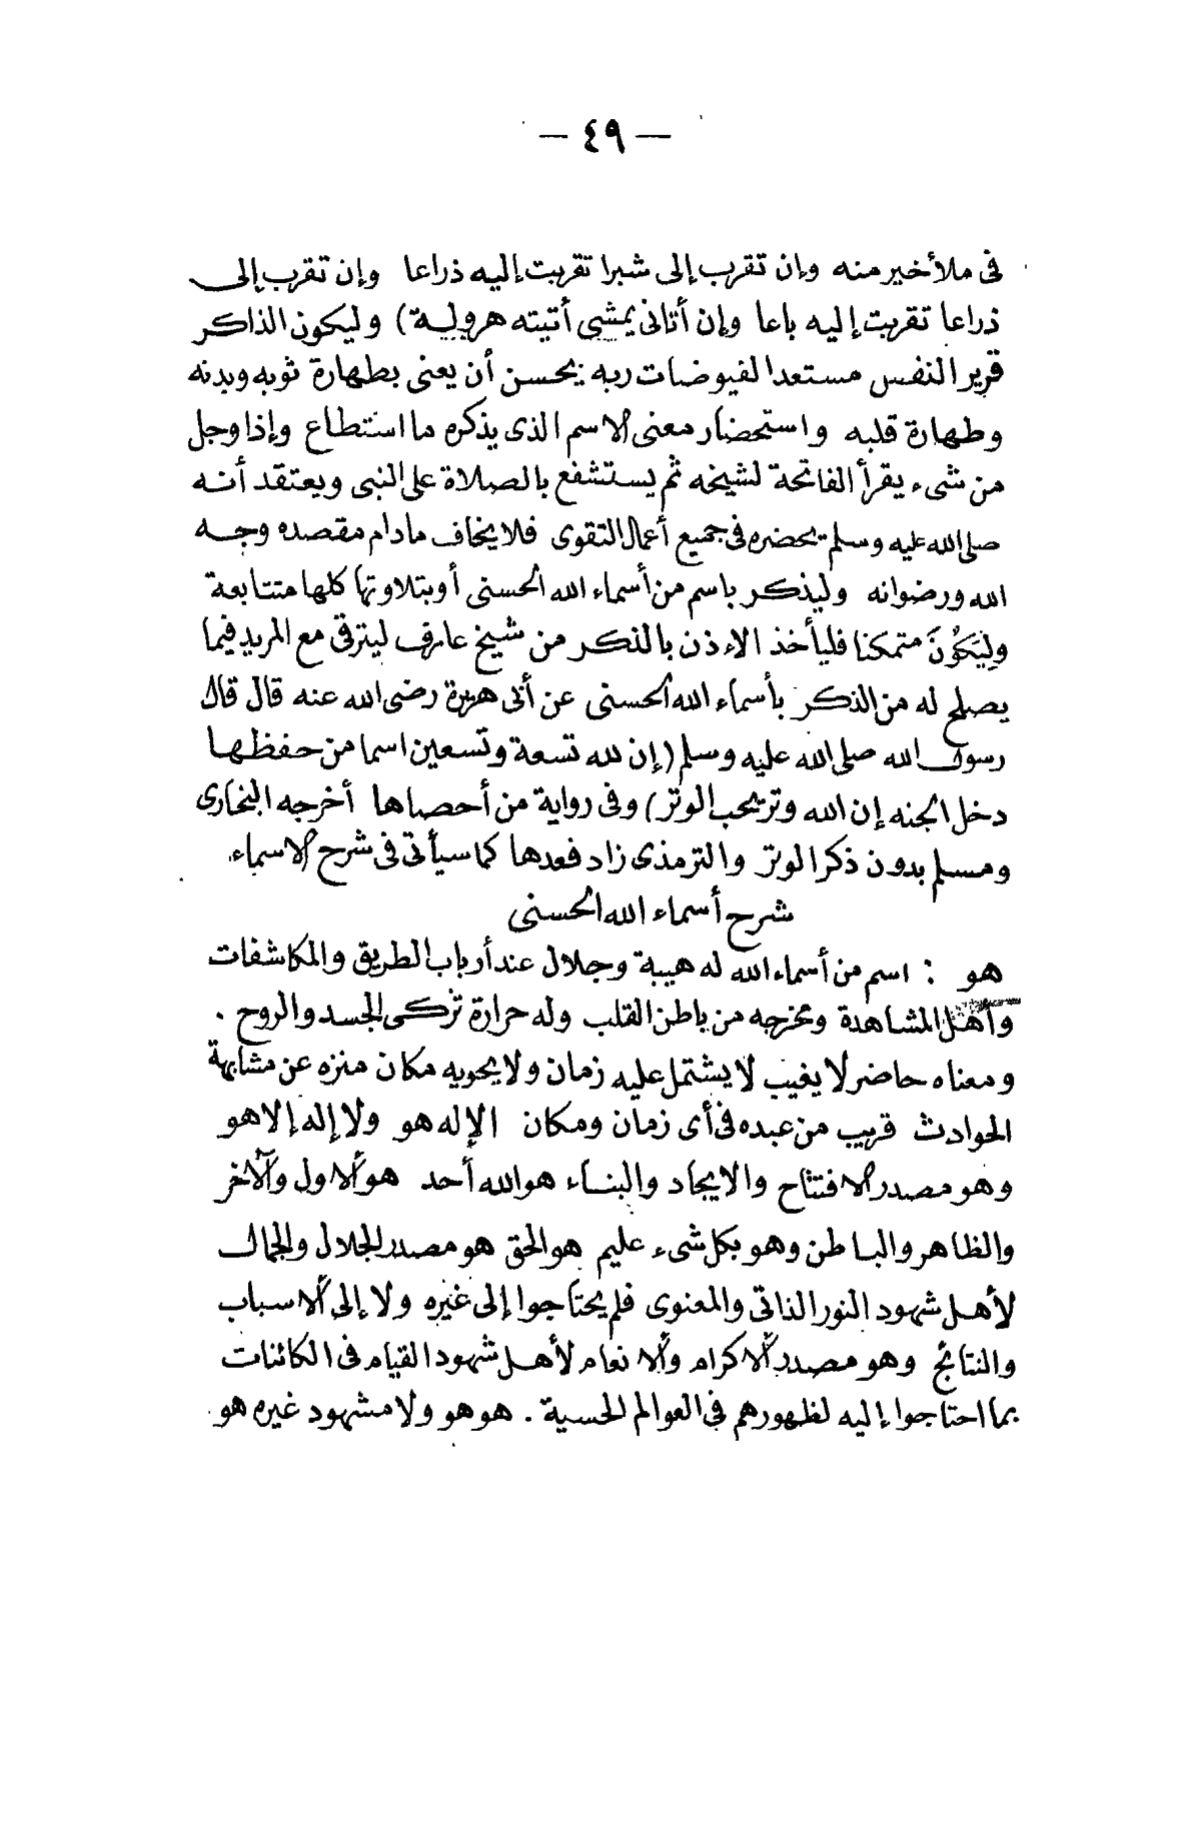 — ٤٩ —
فى ملأ خير منه وإن تقرب إلى شبرا تقربت إليه ذراعا وإن تقرب إلى
ذراعا تقربت إليه باعا وإن أتانى يمشى أتيته هرولة) وليكون الذاكر
قرير النفس مستعدا لفيوضات ربه يحسن أن يعنى بطهارة ثوبه وبدنه
وطهارة قلبه واستحضار معنى الاسم الذى يذكره ما استطاع وإذا وجل
من شىء يقرأ الفاتحة لشيخه ثم يستشفع بالصلاة على النبى ويعتقد أنه
صلى الله عليه وسلم يحضره فى جميع أعمال التقوى فلا يخاف مادام مقصده وجه
الله ورضوانه وليذكر باسم من أسماء الله الحسنى أو بتلاوتها كلها متتابعة
وليَكُونَ متمكنا فليأخذ الاءذن بالذكر من شيخ عارف ليترقى مع المريد فيما
يصلح له من الذكر بأسماء الله الحسنى عن أبى هريرة رضى الله عنه قال قال
رسول الله صلى الله عليه وسلم (إن لله تسعة وتسعين اسما من حفظها
دخل الجنه إن الله وتر يحب الوتر) وفى رواية من أحصاها أخرجه البخارى
ومسلم بدون ذكر الوتر والترمذى زاد فعدها كما سيأتى فى شرح الاسماء.
شرح أسماء الله الحسنى
هو : اسم من أسماء الله له هيبة وجلال عند أرباب الطريق والمكاشفات
وأهل المشاهدة ومخرجه من باطن القلب وله حرارة تزكى الجسد والروح .
ومعناه حاضر لا يغيب لا يشتمل عليه زمان ولا يحويه مكان منزه عن مشابهة
الحوادث قريب من عبده فى أى زمان ومكان الإله هو ولا إله إلا هو
وهو مصدر الافتتاح والايجاد والبناء هو الله أحد هو ألاول وألآخر
والظاهر والباطن وهو بكل شىء عليم هو الحق هو مصدر الجلال والجمال
لأهل شهود النور الذاتى والمعنوى فلم يحتاجوا إلى غيره ولا إلى ألاسباب
والنتائج وهو مصدر ألاكرام وألانعام لأهل شهود القيام فى الكائنات
بما احتاجوا إليه لظهورهم فى العوالم الحسية . هو هو ولا مشهود غيره هو